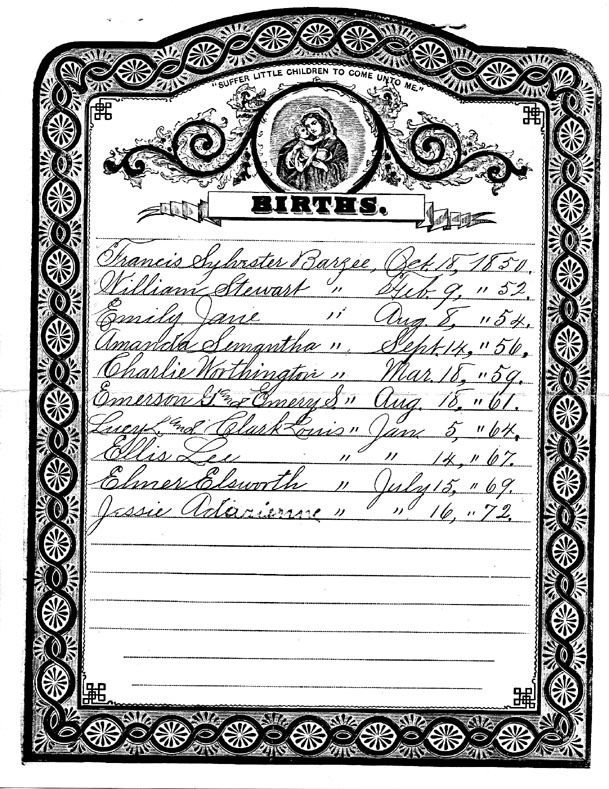 "SUFFER LITTLE CHILDREN TO COME UNTO ME."
BIRTHS.
Francis Sylvester Barzee, Oct. 18, 1850.
William Stewart " Feb. 9, " 52.
Emily Jane " Aug. 8, " 54.
Amanda Semantha " Sept. 14, " 56.
Charlie Worthington " Mar. 18, " 59.
Emerson G. and Emery S. " Aug. 18, " 61.
Lucy L. and Clark Louis " Jan. 5, " 64.
Ellis Lee " " 14, " 67.
Elmer Elsworth " July 15, " 69.
Jessie Adarienne " " 16, " 72.